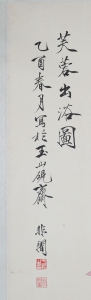 芙蓉出海圖
乙酉春月寫於玉山硯齋
非闇